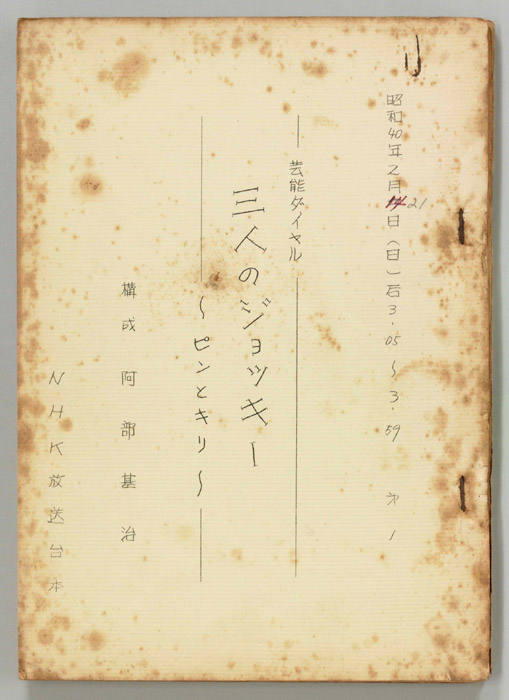 昭和40年2月21日（日）后3.05〜3.59 才1
芸能ダイヤル
三人のジョッキー
〜ピンとキリ〜
構成 阿部基治
NHK放送台本